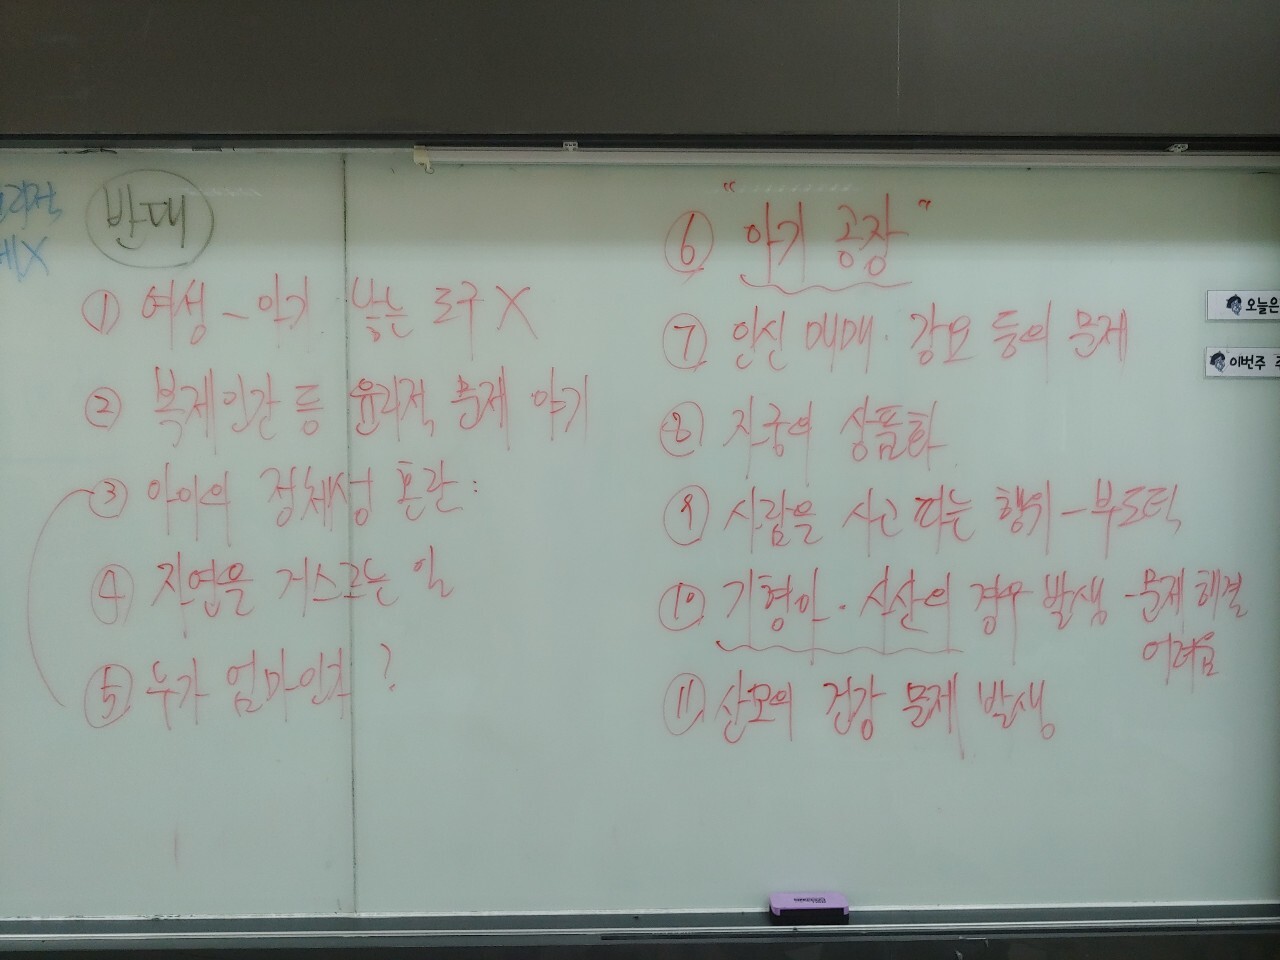 반대
① 여성 - 아기 낳는 도구 X
② 복제인간 등 윤리적 문제 야기
③ 아이의 정체성 혼란:
④ 자연을 거스르는 일
⑤ 누가 엄마인가 ?
⑥ "아기 공장"
⑦ 인신매매·강요 등의 문제
⑧ 자궁의 상품화
⑨ 사람을 사고 파는 행위 - 부도덕
⑩ 기형아·사산의 경우 발생 - 문제 해결
어려움
⑪ 산모의 건강 문제 발생
오늘은
이번주